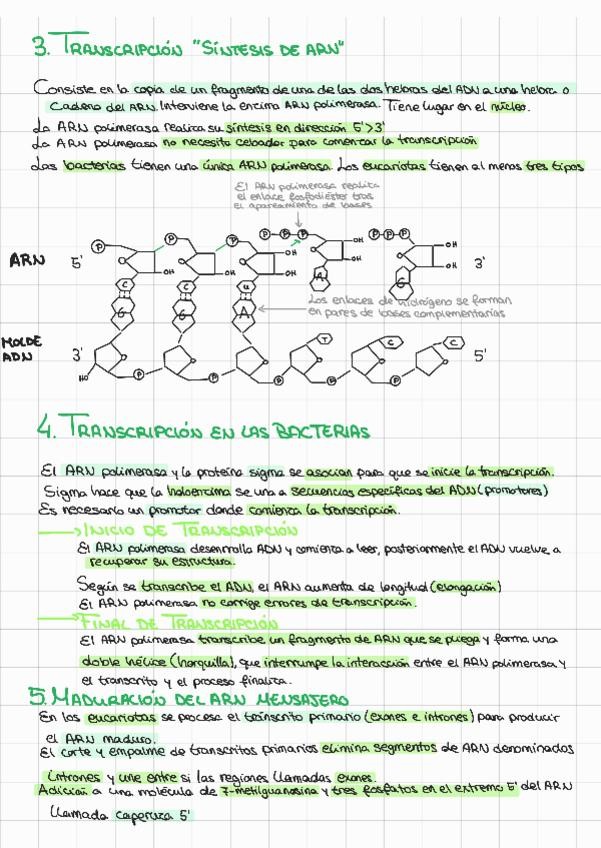 3. TRANSCRIPCIÓN "SÍNTESIS DE ARN"
Consiste en la copia de un fragmento de una de las dos hebras del ADN a una hebra o
Cadena del ARN. Interviene la encima ARN polimerasa. Tiene lugar en el núcleo.
La ARN polimerasa realiza su síntesis en dirección 5'>3'
La ARN polimerasa no necesita cebador para comenzar la transcripción
Las bacterias tienen una única ARN polimerasa. Los eucariotas tienen al menos tres tipos
El ARN polimerasa realiza
el enlace fosfodiéster tras
el apareamiento de bases
P P P P P P P P P
ARN 5' OH OH OH OH OH OH 3'
C C U A G
Los enlaces de hidrógeno se forman
en pares de bases complementarias
G G A
MOLDE
ADN 3' T C C 5'
HO P P P P P
4. TRANSCRIPCIÓN EN LAS BACTERIAS
El ARN polimerasa y la proteína sigma se asocian para que se inicie la transcripción.
Sigma hace que la holoenzima se una a secuencias específicas del ADN (promotores)
Es necesario un promotor donde comienza la transcripción.
→ INICIO DE TRANSCRIPCIÓN
El ARN polimerasa desenrolla ADN y comienza a leer, posteriormente el ADN vuelve a
recuperar su estructura.
Según se transcribe el ADN, el ARN aumenta de longitud (elongación)
El ARN polimerasa no corrige errores de transcripción.
→ FINAL DE TRANSCRIPCIÓN
El ARN polimerasa transcribe un fragmento de ARN que se pliega y forma una
doble hélice (horquilla), que interrumpe la interacción entre el ARN polimerasa y
el transcrito y el proceso finaliza.
5. MADURACIÓN DEL ARN MENSAJERO
En los eucariotas se procesa el tránscrito primario (exones e intrones) para producir
el ARN maduro.
El corte y empalme de transcritos primarios elimina segmentos de ARN denominados
Intrones y une entre si las regiones llamadas exones.
Adición a una molécula de 7-metilguanosina y tres fosfatos en el extremo 5' del ARN
llamada caperuza 5'